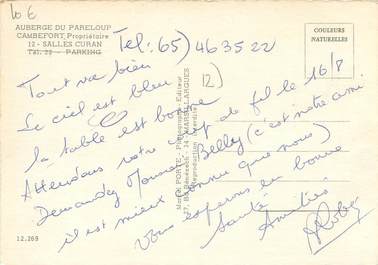 10 E
AUBERGE DU PARELOUP
CAMBEFORT, Propriétaire
12 - SALLES CURAN
Tél. 29 - PARKING
Tel: 65) 463522
12)
COULEURS
NATURELLES
Tout va bien
Le ciel est bleu
la table est bonne
Attendons votre coup de fil le 16/8
Demandez Monsieur Belly (c'est notre ami
il est mieux connu que nous)
Vous espérons en bonne
santé Amitiés
12.269
Marcel PORTE - Photographe - Editeur
34 - MARSILLARGUES
Reproduction interdite